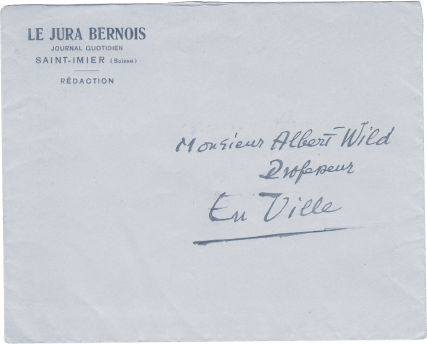 LE JURA BERNOIS
JOURNAL QUOTIDIEN
SAINT-IMIER (Suisse)
RÉDACTION
Monsieur Albert Wild
Professeur
En Ville